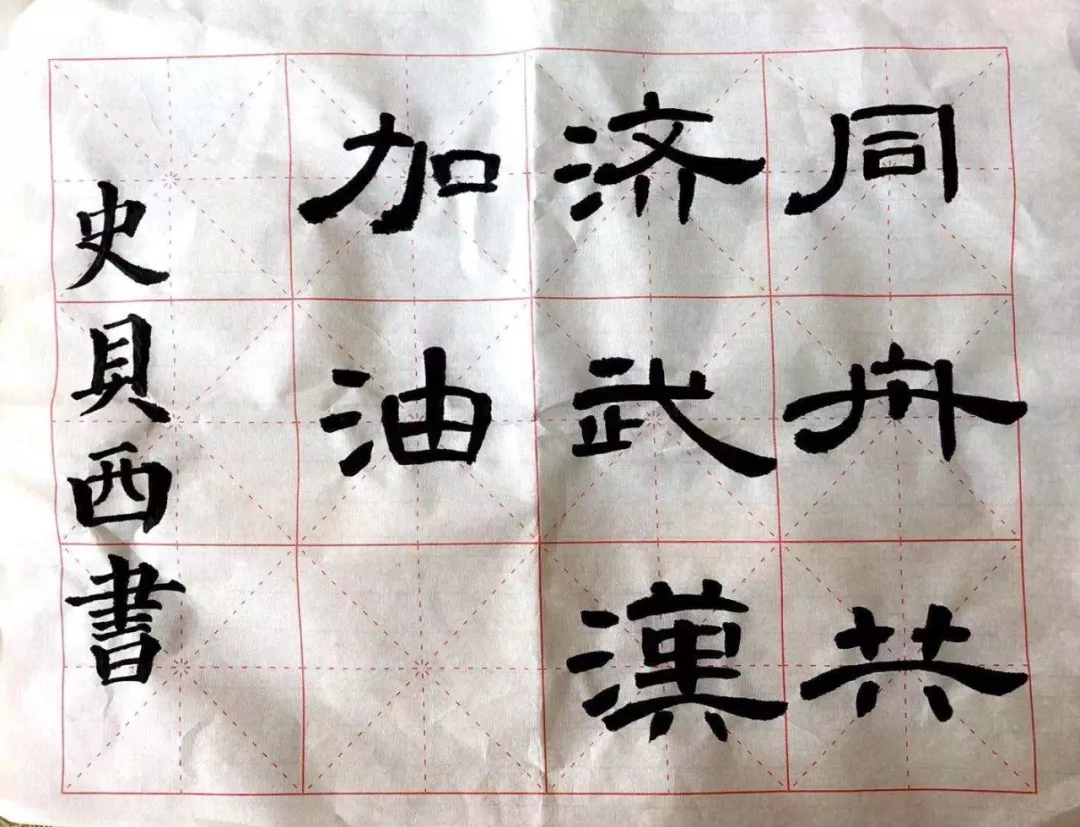 同舟共
济武漢
加油
史貝西書